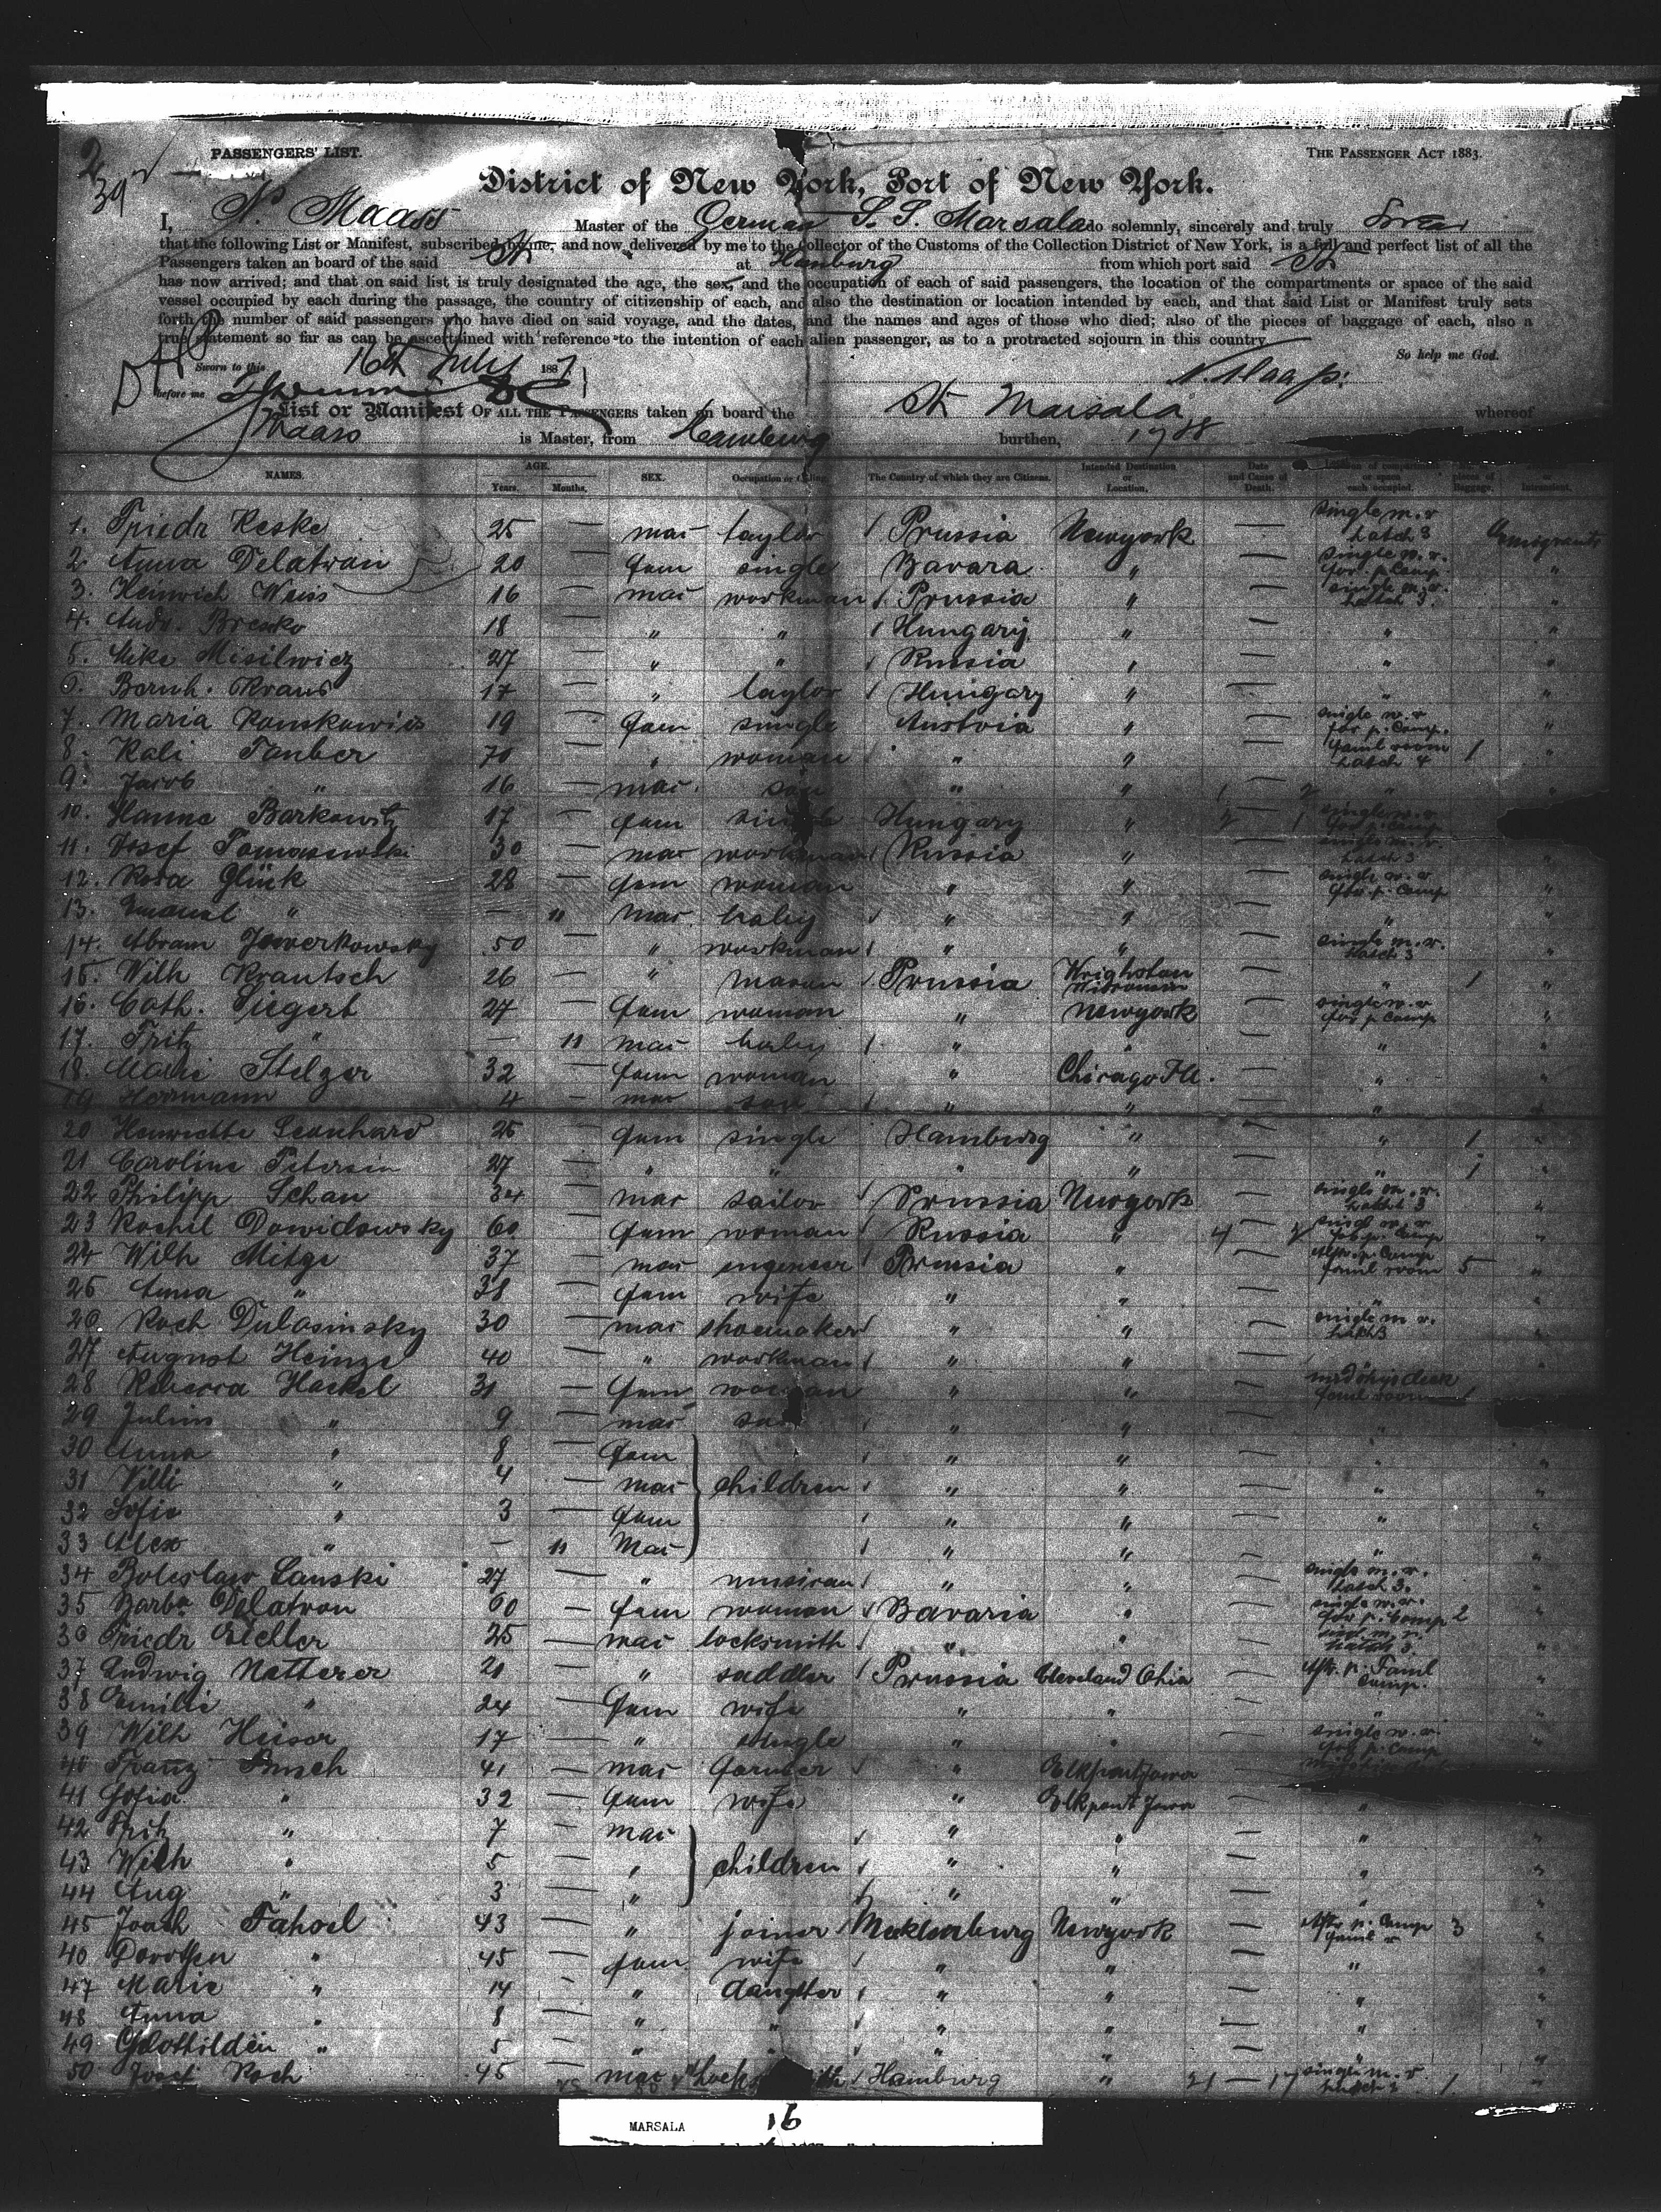 PASSENGERS' LIST.
THE PASSENGER ACT 1883.
2
39
District of New York, Port of New York.
I, N. Maass Master of the German S. S. Marsala do solemnly, sincerely and truly Swear
that the following List or Manifest, subscribed by me, and now delivered by me to the Collector of the Customs of the Collection District of New York, is a full and perfect list of all the
Passengers taken on board of the said Str at Hamburg from which port said Str
has now arrived; and that on said list is truly designated the age, the sex, and the occupation of each of said passengers, the location of the compartments or space of the said
vessel occupied by each during the passage, the country of citizenship of each, and also the destination or location intended by each, and that said List or Manifest truly sets
forth the number of said passengers who have died on said voyage, and the dates, and the names and ages of those who died; also of the pieces of baggage of each, also a
true statement so far as can be ascertained with reference to the intention of each alien passenger, as to a protracted sojourn in this country
So help me God.
Sworn to this 16th July 1887
N. Maass
before me
List or Manifest OF ALL THE PASSENGERS taken on board the Str Marsala whereof
Maass is Master, from Hamburg burthen, 1788
NAMES. AGE. Years. Months. SEX. Occupation or Calling The Country of which they are Citizens. Intended Destination or Location. Date and Cause of Death. of compartment or space each occupied. pieces of Baggage.
1. Friedr Keske 25 — mas taylor Prussia Newyork — single m. r hatch 3 Emigrants
2 Anna Delatron 20 — fem single Bavara " — single w. r. for p. Comp. "
3. Heinrich Weiss 16 — mas workman Prussia " — single m. r. hatch 3. "
4. Andr. 18 — " " Hungary " — " "
5. Mike Misilwicz 27 — " " Russia " — " "
6. Bernh. Kraus 17 — " taylor Hungary " — " "
7. Maria 19 — fem single Austria " — single w. r for p. Comp. "
8. Kali Tauber 70 — " woman " " — famil room hatch 4 1 "
9. Jacob " 16 — mas. son " " "
10. Hanne Barkowitz 17 — fem single Hungary " single w. r for p. Comp
11. Josef Tomaszewski 30 — mas workman Russia " — single m. r. hatch 3 "
12. Rosa Glück 28 — fem woman " " — single w. r for p. Comp "
13. Emanuel " — 11 mas baby " " — " "
14. Abram 50 — " workman " " — single m. r. hatch 3 "
15. Wilh Krautsch 26 — " mason Prussia Wrighstan — " 1 "
16. Cath. Siegert 27 — fem woman " Newyork — single w. r for p Comp "
17. Fritz " — 11 mas baby " " — " "
18. Marie Stelzer 32 — fem woman " Chicago Ill. — " "
19 Herrmann 4 — mas son " " — " "
20 Henriette Leonhard 25 — fem single Hamburg " — " 1 "
21 Caroline Petersen 27 — " " " " — " 1 "
22 Philipp Schau 34 — mas sailor Prussia Newyork — single m. r. hatch 3 "
23 Rochel Dawidowsky 60 — fem woman Russia " single w. r for p. Comp "
24 Wilh Mitge 37 — mas engeneer Prussia " — Aftr. p. Comp famil room 5 "
25 Anna " 38 — fem wife " " — " "
26 Roch Dulasinsky 30 — mas shoemaker " " — single m r. hatch 3 "
27 August Heinze 40 — " workman " " — "
28 Rebecca Haskel 31 — fem woman " " — famil room 1
29 Julius " 9 — mas son " " —
30 Anna " 8 — fem " " — " "
31 Villi " 4 — mas children " " — " "
32 Sofie " 3 — fem " " — " "
33 Alex " — 11 Mas " " — " "
34 Boleslaw Lanski 27 — " musican " " — single m. r. hatch 3. "
35 Barba Delatron 60 — fem woman Bavaria " — single w. r. for p. Comp 2 "
36 Friedr Eichler 25 — mas locksmith " " — hatch 3 "
37 Ludwig Natterer 21 — " saddler Prussia Cleveland Ohio — Aftr. p. Famil Comp. "
38 Emilie " 24 — fem wife " " — " "
39 Wilh Heiser 17 — " single " " — single w. r. for p. Comp "
40 Franz Busch 41 — mas farmer " Elkpoint Jowa —
41 Sofia " 32 — fem wife " Elkpoint Jowa — "
42 Fritz " 7 — mas " " — " "
43 Wilh " 5 — " children " " — " "
44 Aug " 3 — " " " — " "
45 Joach Fahsel 43 — " joiner Mecklenburg Newyork — Aftr. p. Comp famil r 3 "
46 Dorothea " 45 — fem wife " " — " "
47 Marie " 14 — " daughter " " — " "
48 Anna " 8 — " " " " — " "
49. " 5 — " " " " — " "
50 Josef Koch 45 mas Hamburg " 21 — 17 single m. r hatch 3 1 "
MARSALA 16